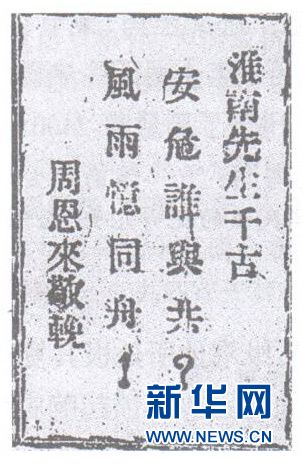 淮南先生千古
安危誰與共？
風雨憶同舟！
周恩來敬輓
新华网
WWW.NEWS.CN